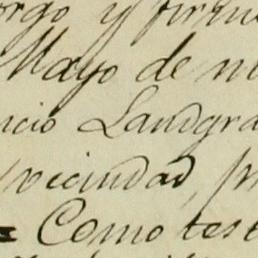 orgo y firm
Mayo de m
ncio Landgra
veciudad, pr
= Como test